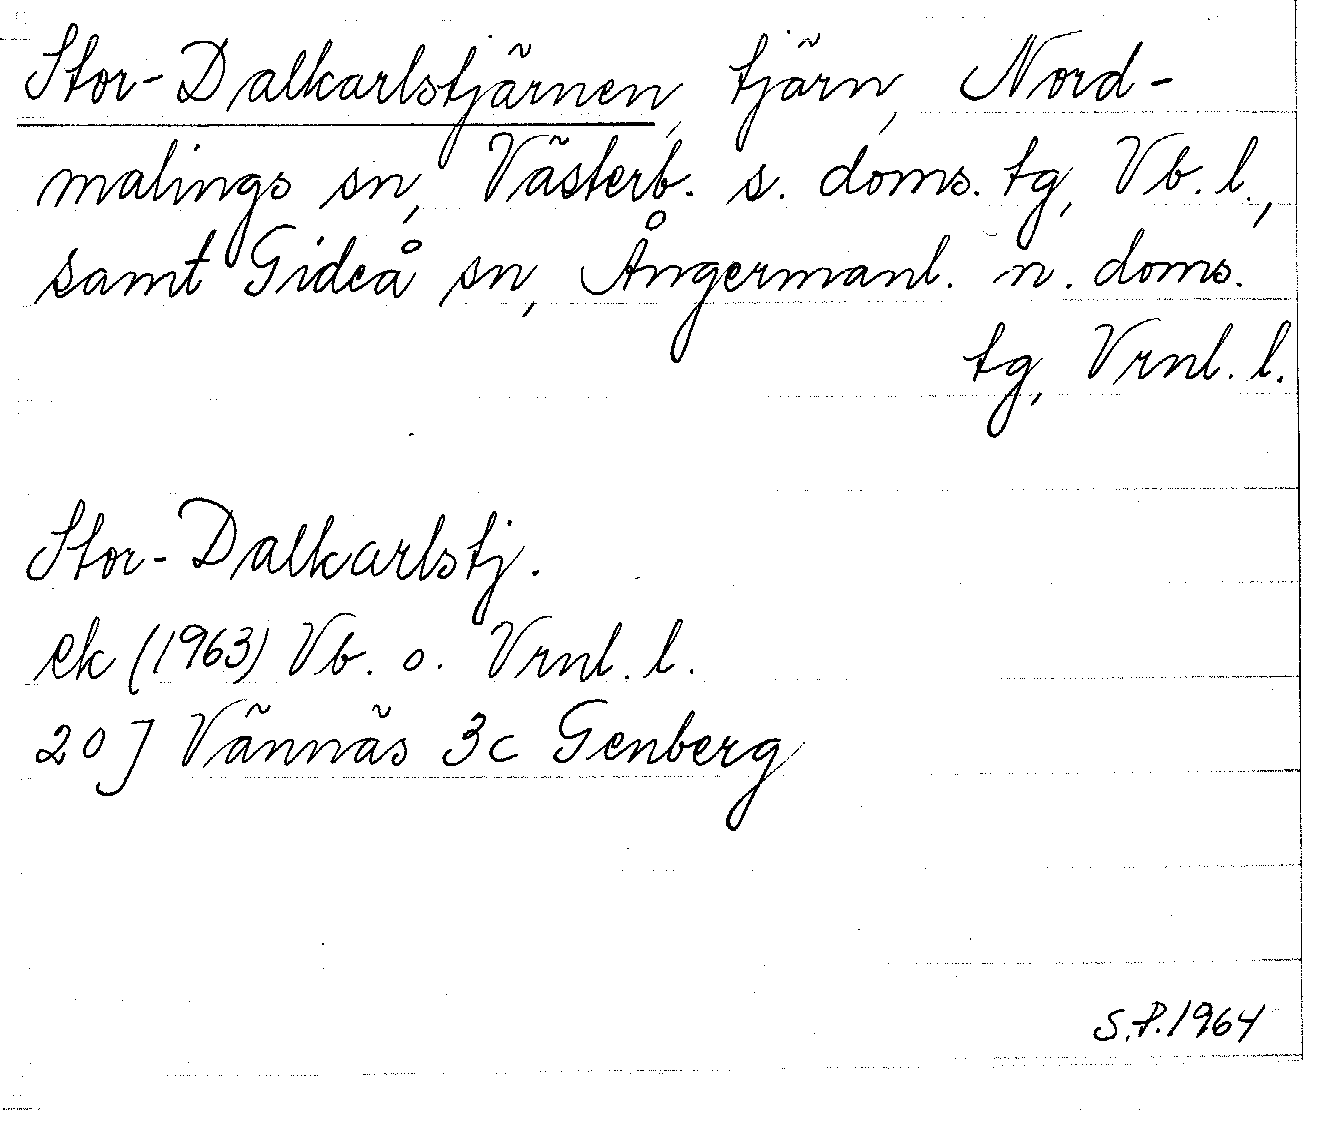 Stor-Dalkarlstjärnen, tjärn, Nord-
malings sn, Västerb. s. doms. tg, Vb. l.,
samt Gideå sn, Ångermanl. n. doms.
tg, Vrnl. l.
Stor-Dalkarlstj.
ek (1963) Vb. o. Vrnl. l.
20 J Vännäs 3c Genberg
S.P. 1964